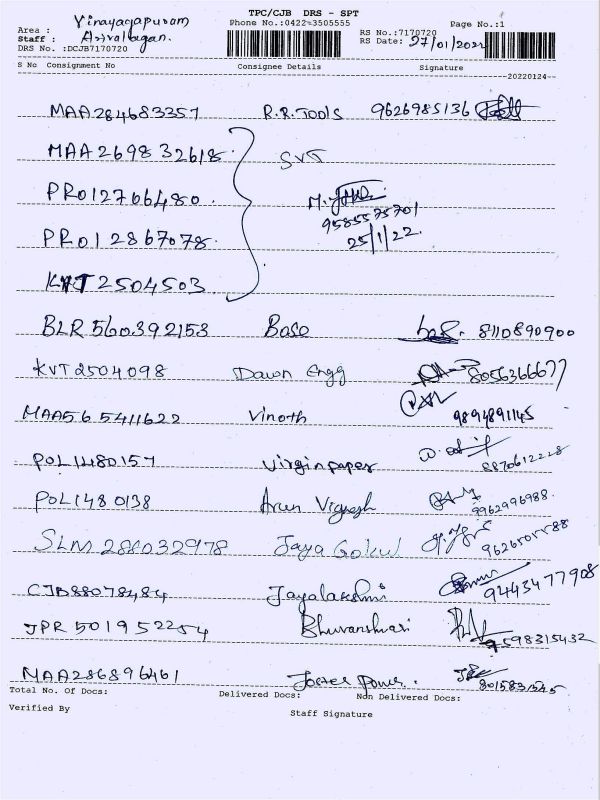 TPC/CJB DRS - SPT
Area : Vinayagapuram Phone No.:0422-3505555 Page No.:1
Staff : RS No.:7170720
DRS No. :DCJB7170720 RS Date: 27/01/2022
S No Consignment No Consignee Details Signature
20220124
MAA284683357 R.R.Tools 9626985136
MAA269832618 SVT
PRO12706480 M.
9585575701
PRO12867078 25/1/22
KVT2504503
BLR560392153 Base 8110890900
KVT2504098 Dawn Engg 8056366677
MAA565411622 Vinoth 9894891145
POL1480157 Virginpaper 8870612228
POL1480138 Arun Vignesh 9962996988
SLM288032978 Jaya Gokul
CJB88078484 Jayalakshmi 9443477908
JPR501952254 Bhuvaneshwari 9598315432
MAA286896461
Total No. Of Docs: Delivered Docs: Non Delivered Docs:
Verified By
Staff Signature